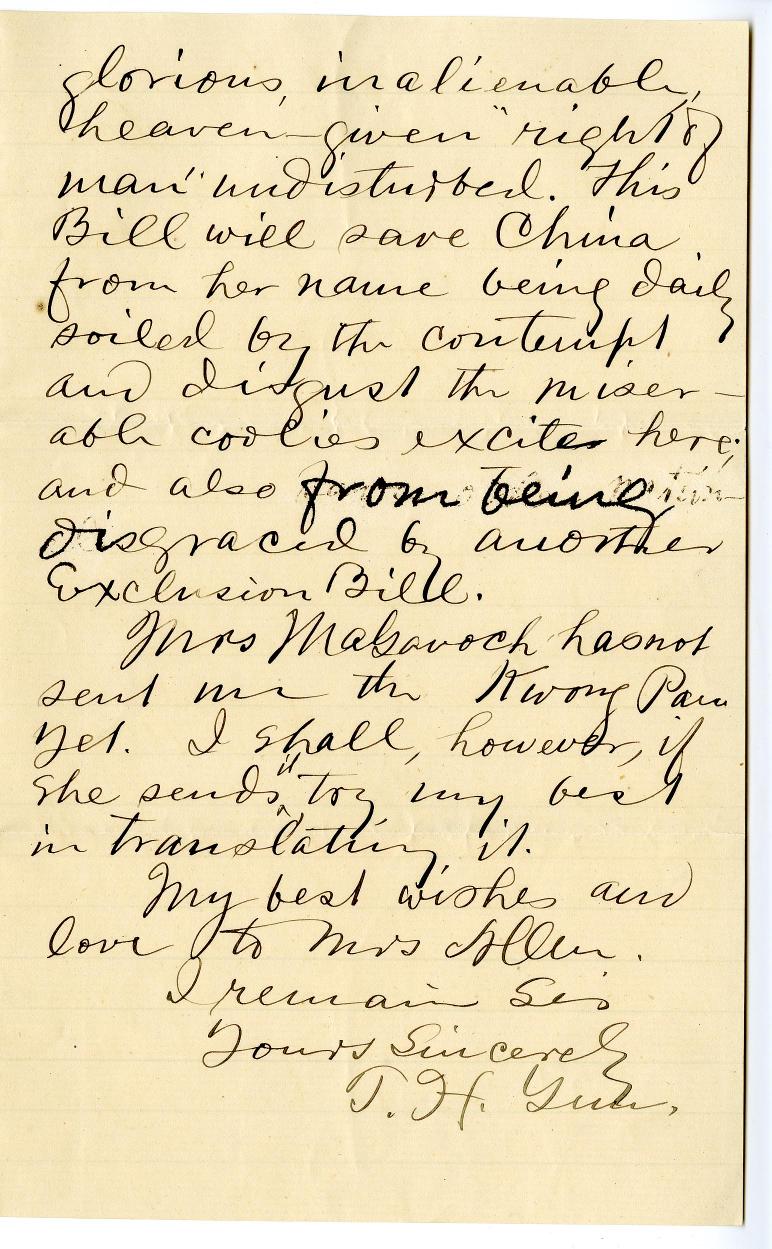 glorious, inalienable,
heaven-given "right of
man" undisturbed. This
Bill will save China
from her name being daily
soiled by the contempt
and disgust the miser-
able coolies excites here;
and also from being
disgraced by another
Exclusion Bill.
Mrs MaGavoch has not
sent me the Kwong Pau
yet. I shall, however, if
she sends it, try my best
in translating it.
My best wishes and
love to Mrs Allen.
I remain Sir
Yours Sincerely
T. H. Yun.